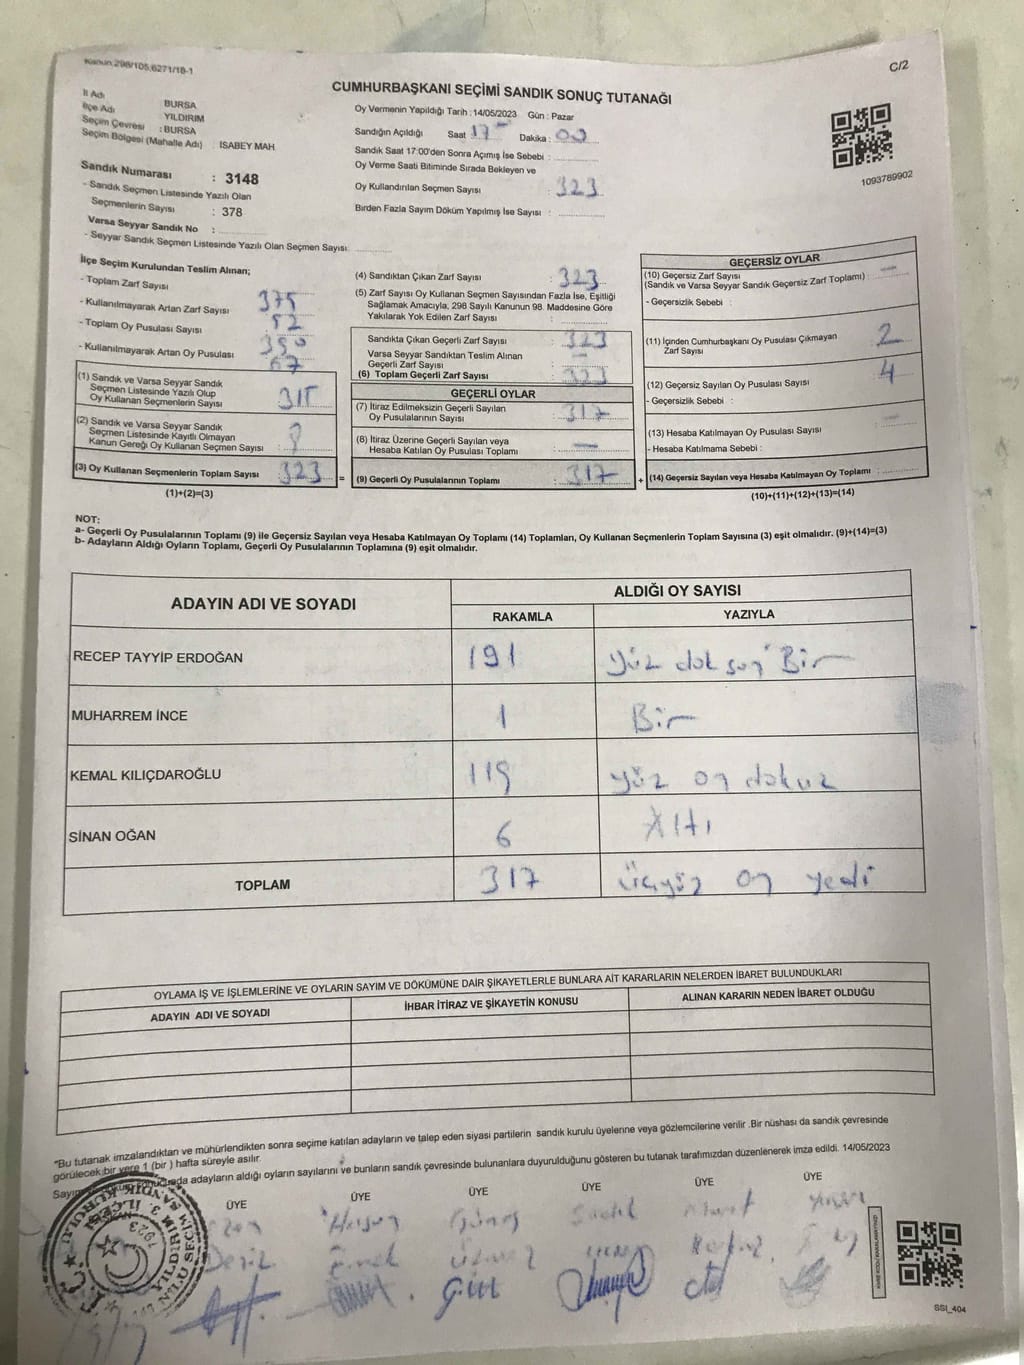 Kanun:298/105,6271/18-1
C/2
CUMHURBAŞKANI SEÇİMİ SANDIK SONUÇ TUTANAĞI
İl Adı BURSA
İlçe Adı YILDIRIM
Seçim Çevresi : BURSA
Seçim Bölgesi (Mahalle Adı) : İSABEY MAH.
Sandık Numarası : 3148
- Sandık Seçmen Listesinde Yazılı Olan
Seçmenlerin Sayısı : 378
Varsa Seyyar Sandık No :
- Seyyar Sandık Seçmen Listesinde Yazılı Olan Seçmen Sayısı:
Oy Vermenin Yapıldığı Tarih : 14/05/2023 Gün : Pazar
Sandığın Açıldığı Saat 17 Dakika : 00
Sandık Saat 17:00'den Sonra Açımış İse Sebebi :
Oy Verme Saati Bitiminde Sırada Bekleyen ve
Oy Kullandırılan Seçmen Sayısı : 323
Birden Fazla Sayım Döküm Yapılmış İse Sayısı :
1093789902
İlçe Seçim Kurulundan Teslim Alınan;
- Toplam Zarf Sayısı 375
- Kullanılmayarak Artan Zarf Sayısı 52
- Toplam Oy Pusulası Sayısı 390
- Kullanılmayarak Artan Oy Pusulası 67
(1) Sandık ve Varsa Seyyar Sandık
Seçmen Listesinde Yazılı Olup
Oy Kullanan Seçmenlerin Sayısı 315
(2) Sandık ve Varsa Seyyar Sandık
Seçmen Listesinde Kayıtlı Olmayan
Kanun Gereği Oy Kullanan Seçmen Sayısı : 8
(3) Oy Kullanan Seçmenlerin Toplam Sayısı 323 =
(1)+(2)=(3)
(4) Sandıktan Çıkan Zarf Sayısı : 323
(5) Zarf Sayısı Oy Kullanan Seçmen Sayısından Fazla İse, Eşitliği
Sağlamak Amacıyla, 298 Sayılı Kanunun 98. Maddesine Göre
Yakılarak Yok Edilen Zarf Sayısı :
Sandıkta Çıkan Geçerli Zarf Sayısı : 323
Varsa Seyyar Sandıktan Teslim Alınan
Geçerli Zarf Sayısı : —
(6) Toplam Geçerli Zarf Sayısı : 323
GEÇERLİ OYLAR
(7) İtiraz Edilmeksizin Geçerli Sayılan
Oy Pusulalarının Sayısı : 317
(8) İtiraz Üzerine Geçerli Sayılan veya
Hesaba Katılan Oy Pusulası Toplamı : —
(9) Geçerli Oy Pusulalarının Toplamı : 317 +
GEÇERSİZ OYLAR
(10) Geçersiz Zarf Sayısı
(Sandık ve Varsa Seyyar Sandık Geçersiz Zarf Toplamı) : —
- Geçersizlik Sebebi :
(11) İçinden Cumhurbaşkanı Oy Pusulası Çıkmayan
Zarf Sayısı 2
(12) Geçersiz Sayılan Oy Pusulası Sayısı 4
- Geçersizlik Sebebi :
(13) Hesaba Katılmayan Oy Pusulası Sayısı : —
- Hesaba Katılmama Sebebi :
(14) Geçersiz Sayılan veya Hesaba Katılmayan Oy Toplamı :
(10)+(11)+(12)+(13)=(14)
NOT:
a- Geçerli Oy Pusulalarının Toplamı (9) ile Geçersiz Sayılan veya Hesaba Katılmayan Oy Toplamı (14) Toplamları, Oy Kullanan Seçmenlerin Toplam Sayısına (3) eşit olmalıdır. (9)+(14)=(3)
b- Adayların Aldığı Oyların Toplamı, Geçerli Oy Pusulalarının Toplamına (9) eşit olmalıdır.
ADAYIN ADI VE SOYADI ALDIĞI OY SAYISI
RAKAMLA YAZIYLA
RECEP TAYYİP ERDOĞAN 191 Yüz doksan Bir
MUHARREM İNCE 1 Bir
KEMAL KILIÇDAROĞLU 119 Yüz on dokuz
SİNAN OĞAN 6 Altı
TOPLAM 317 Üçyüz on yedi
OYLAMA İŞ VE İŞLEMLERİNE VE OYLARIN SAYIM VE DÖKÜMÜNE DAİR ŞİKAYETLERLE BUNLARA AİT KARARLARIN NELERDEN İBARET BULUNDUKLARI
ADAYIN ADI VE SOYADI İHBAR İTİRAZ VE ŞİKAYETİN KONUSU ALINAN KARARIN NEDEN İBARET OLDUĞU
"Bu tutanak imzalandıktan ve mühürlendikten sonra seçime katılan adayların ve talep eden siyasi partilerin sandık kurulu üyelerine veya gözlemcilerine verilir .Bir nüshası da sandık çevresinde
görülecek bir yere 1 (bir ) hafta süreyle asılır.
adayların aldığı oyların sayılarını ve bunların sandık çevresinde bulunanlara duyurulduğunu gösteren bu tutanak tarafımızdan düzenlenerek imza edildi. 14/05/2023
ÜYE ÜYE ÜYE ÜYE ÜYE ÜYE
Hasan Güneş Murat
Deniz
SSI_404